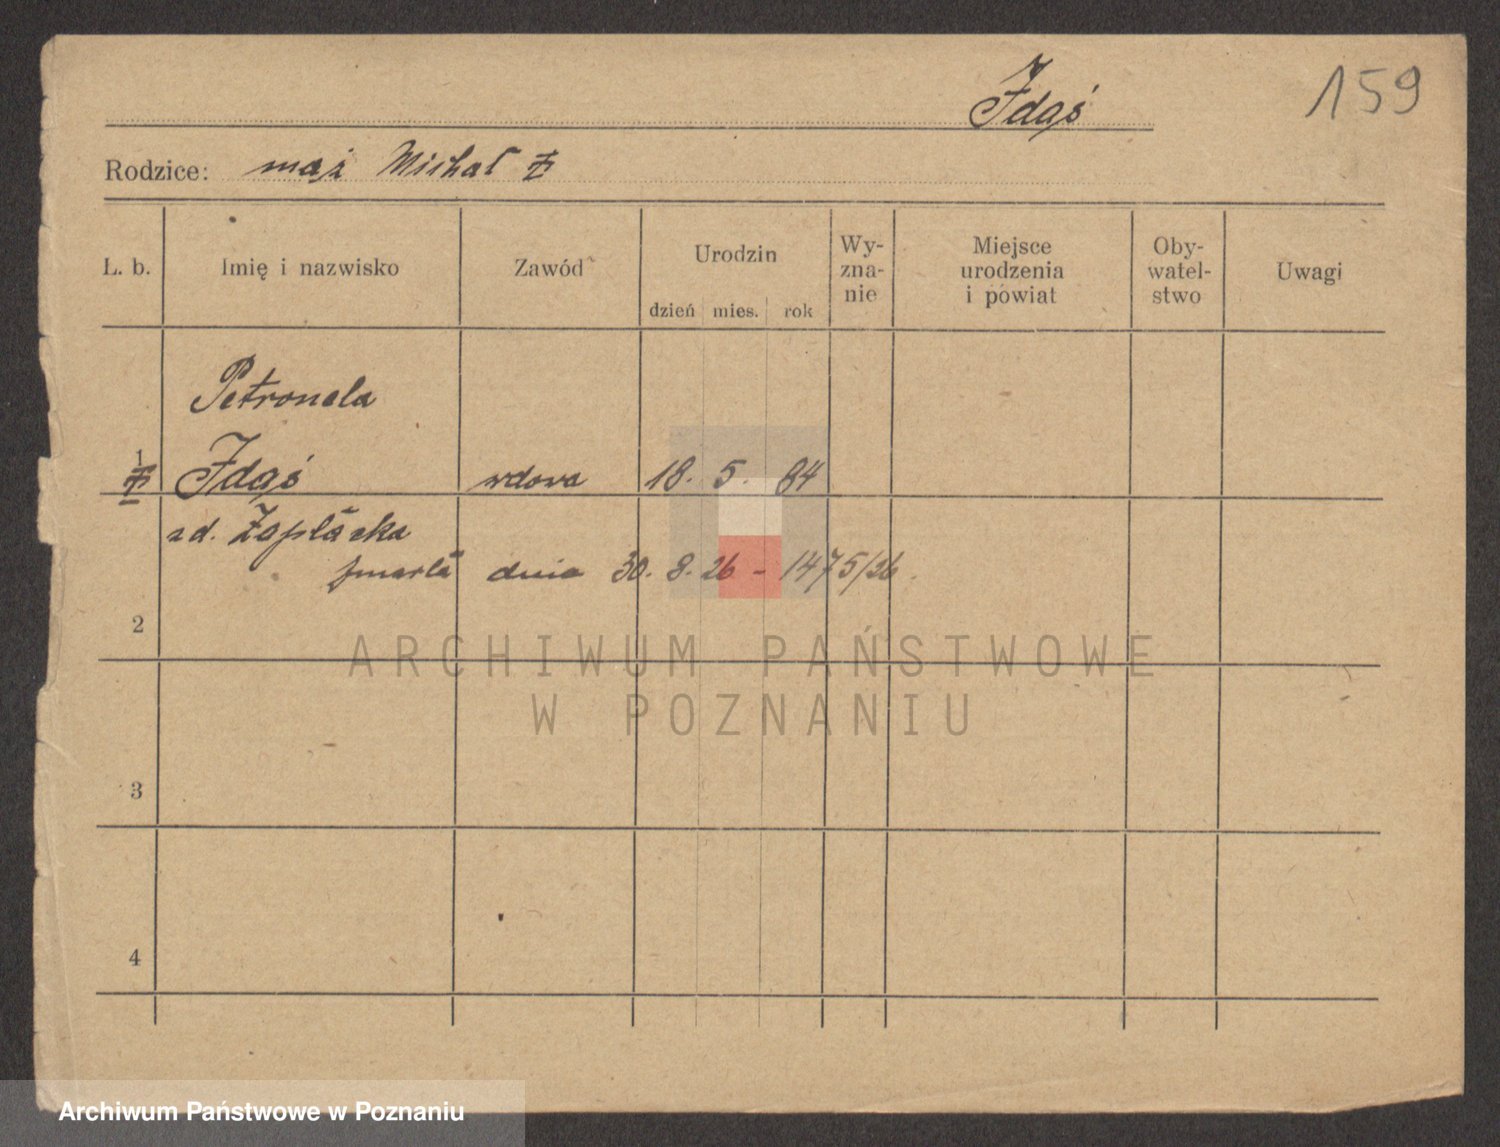 Idąś
159
Rodzice: mąż Michał
L. b. Imię i nazwisko Zawód Urodzin dzień mies. rok Wy-zna-nie Miejsce urodzenia i powiat Oby-watel-stwo Uwagi
Petronela
1 Idąś wdowa 18. 5. 84
zd. Zaplącka
zmarła dnia 30. 8. 26 - 1475/26
2
ARCHIWUM PAŃSTWOWE
W POZNANIU
3
4
Archiwum Państwowe w Poznaniu